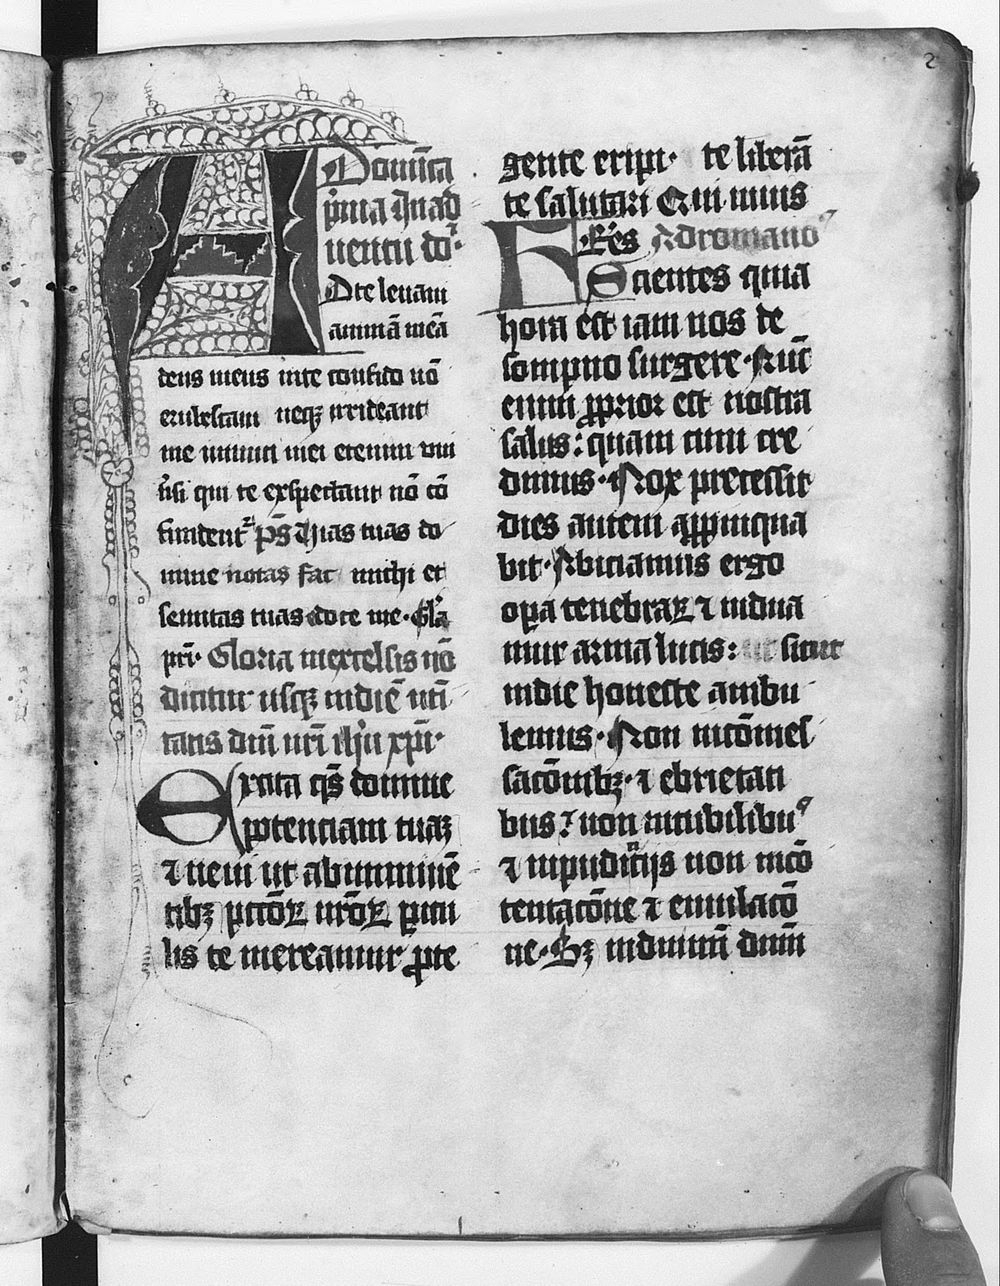 2
Domĩca
p̃ma In ad
uentu do͛·
A Dte leuaui
animã meã
deus meus in te confido nõ
erubescam neqꝫ irrideant
me inimici mei etenim vni
ũsi qui te exspectant nõ cõ
fundent᷑ p̃s Uias tuas do
mine notas fac michi et
semitas tuas edoce me· Gl̃a
pr̃i· Gloria in excelsis nõ
dicitur usqꝫ in diẽ nati
tatis dñi nr̃i ih̃u xp̃i·
Excita q̃s domine
potenciam tuaꝫ
⁊ veni ut ab imminẽ
tibꝫ pccõꝝ nr̃õꝝ ꝑicu
lis te mereamur ꝓte
gente eripi· te liberã
te saluari Qui viuis
Fr̃es Ad romanoꝰ
Scientes quia
hora est iam nos de
sompno surgere· Nũc
enim ꝓprior est nostra
salus: quam cum cre
dimus· Nox precessit
dies autem aꝓpinqua
bit· Abiciamus ergo
oꝑa tenebraꝝ ⁊ indua
mur arma lucis: ut sicut
in die honeste ambu
lemus· Non in cõmes
sacõnibꝫ· ⁊ ebrietati
bus? non in cubilibuꝰ
⁊ inpudicicijs non in cõ
tentacõne ⁊ emulacõ
ne· Sꝫ induimĩ dñm